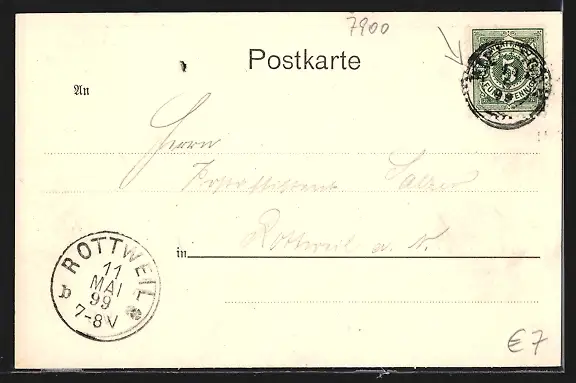 7900
Postkarte
An
5
Herrn
Postassistent Salzer
in Rottweil a. N.
ROTTWEIL
11
MAI
99
7-8V
b
€7